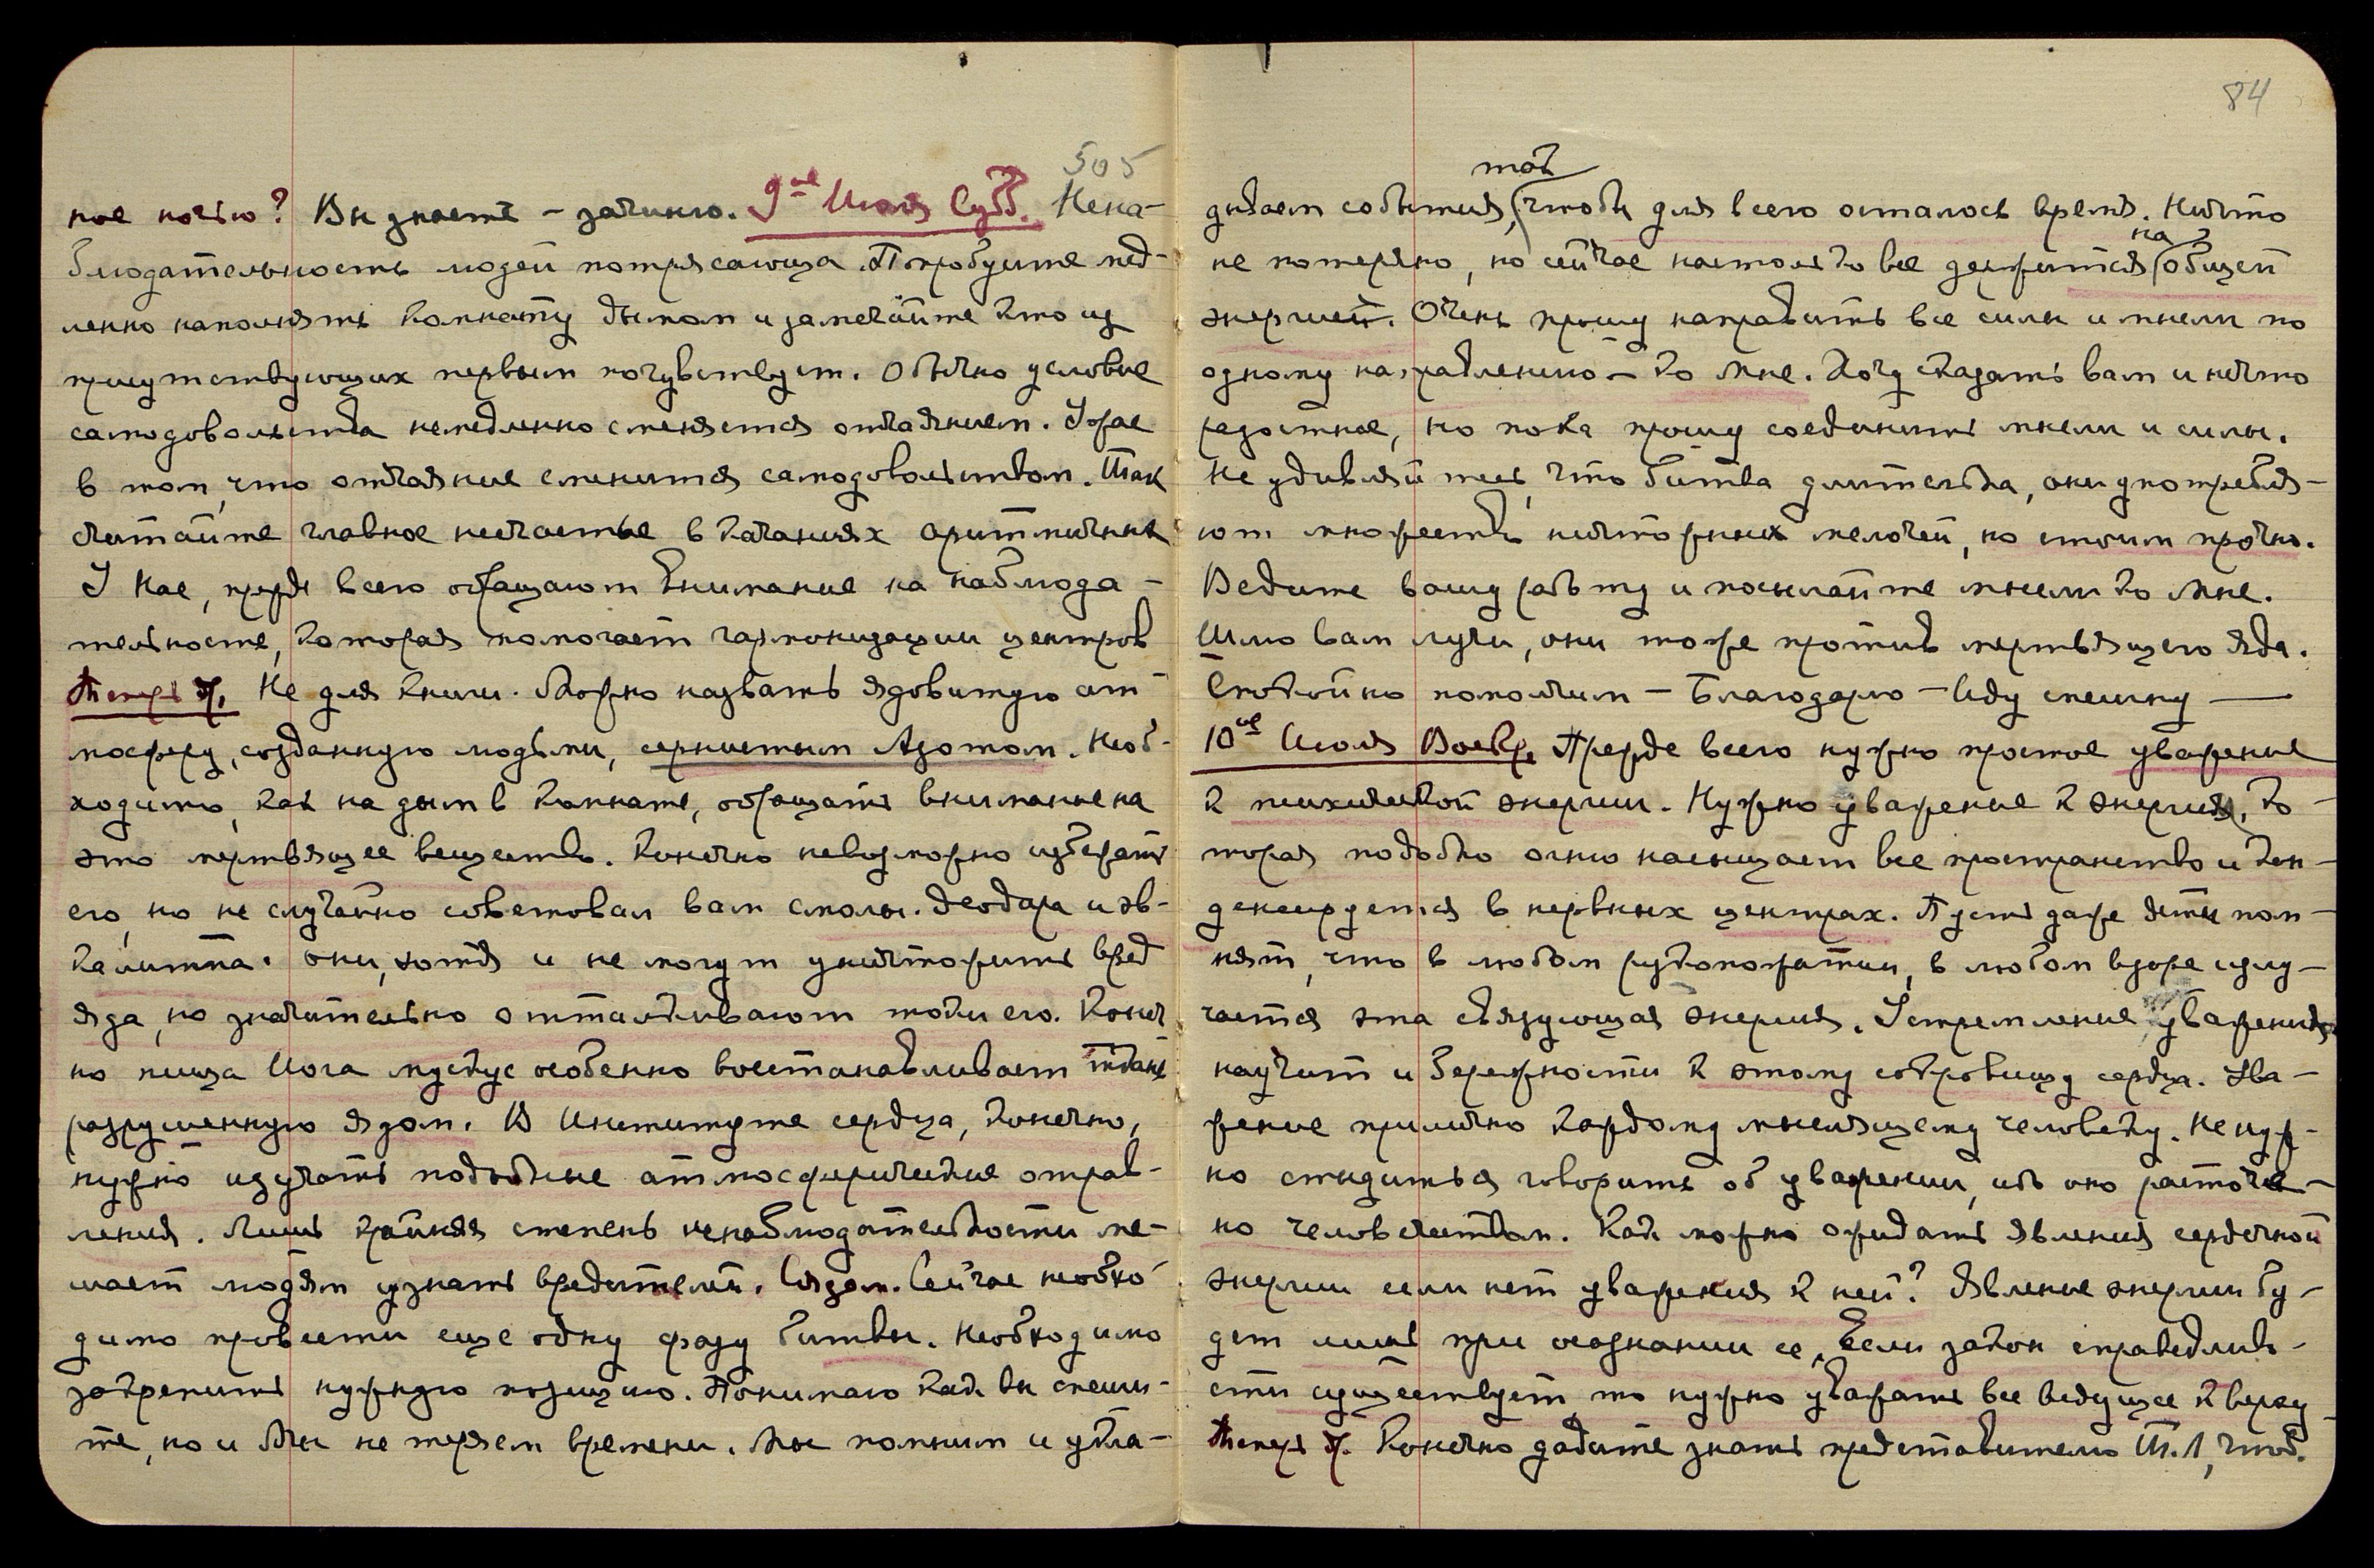 505
ное ночью? Вы знаете – зачиню. 9ое Июля Субб. Нена-
блюдательность людей потрясающа. Попробуйте мед-
ленно наполнять комнату дымом и замечайте кто из
присутствующих первым почувствует. Обычно условие
самодовольства немедленно сменяется отчаянием. Ужас
в том, что отчаяние сменится самодовольством. Так
считайте главное несчастье в качаниях аритмичных
У Нас, прежде всего обращают внимание на наблюда-
тельность, которая помогает гармонизации центров
Теперь др. Не для книги. Можно назвать ядовитую ат-
мосферу, созданную людьми, сернистым Азотом. Необ-
ходимо, как на дым в комнате, обращать внимание на
это мертвящее вещество. Конечно невозможно избежать
его, но не случайно советовал вам смолы. Деодара и эв-
калипта. они, хотя и не могут уничтожить вред
яда, но значительно отталкивают токи его. Конеч
но пища Йога мускус особенно восстанавливает ткань
разрушенную ядом. В Институте сердца, конечно,
нужно изучать подобные атмосферические отрав-
ления. Лишь крайняя степень ненаблюдательности ме-
шает людям узнать вредителей. Сейчас необхо
димо провести еще одну фазу битвы. Необходимо
закрепить нужную позицию. Понимаю как вы спеши-
те, но и Мы не теряем времени. Мы помним и укла-
84
так
дываем события, чтобы для всего осталось время. Ничто
на
не потеряно, но сейчас настолько все держится общей
энергией. Очень прошу направить все силы и мысли по
одному направлению – ко Мне. Хочу сказать вам и нечто
радостное, но пока прошу соединить мысли и силы.
Не удивляйтесь, что битва длительна, они употребля-
ют множество ничтожных мелочей, но стоим прочно.
Ведите вашу работу и посылайте мысли ко Мне.
Шлю вам лучи, они тоже против мертвящего яда.
Спокойно помолчим – Благодарю – Иду спешну —
10ое Июля Воскр. Прежде всего нужно простое уважение
к психической энергии. Нужно уважение к энергии, ко-
торая подобно огню насыщает все пространство и кон-
денсируется в нервных центрах. Пусть даже дети пом-
нят, что в любом рукопожатии, в любом взоре излу-
чается эта связующая энергия. Устремление уважения
научит и бережности к этому сокровищу сердца. Ува-
жение прилично каждому мыслящему человеку. Не нуж-
но стыдиться говорить об уважении, ибо оно расточе-
но человечеством. Как можно ожидать явления сердечной
энергии если нет уважения к ней? Явление энергии бу-
дет лишь при осознании ее. Если закон справедливо-
сти существует, то нужно уважать все ведущее кверху
Теперь др. Конечно дадите знать представителю Т.Л, чтоб.